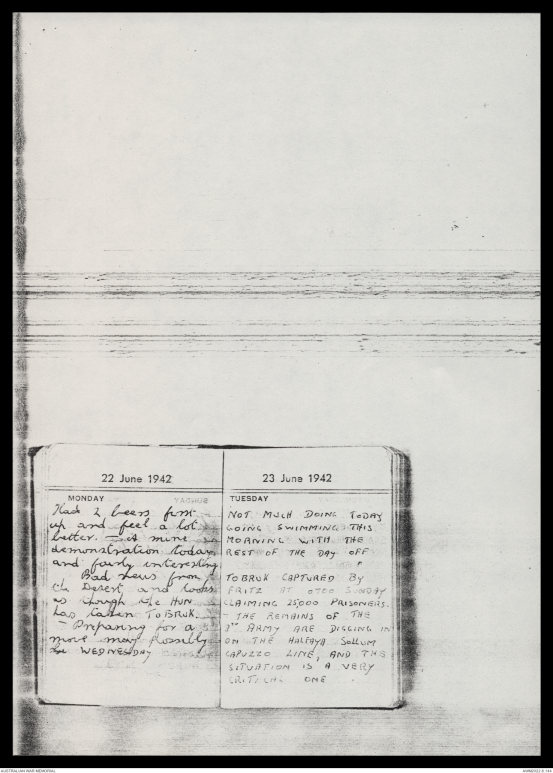 22 June 1942
MONDAY
Had 2 beers first
up and feel a lot
better. – A mine
demonstration today
and fairly interesting
Bad news from
the Desert and looks
as though the HUN
has taken TOBRUK.
– Preparing for a
move may possibly
be WEDNESDAY
23 June 1942
TUESDAY
NOT MUCH DOING TODAY
GOING SWIMMING THIS
MORNING WITH THE
REST OF THE DAY OFF
TOBRUK CAPTURED BY
FRITZ AT 0700 SUNDAY
CLAIMING 25,000 PRISONERS.
– THE REMAINS OF THE
ARMY ARE DIGGING IN
ON THE HALFAYA SOLLUM
CAPUZZO LINE, AND THE
SITUATION IS A VERY
CRITICAL ONE.
AUSTRALIAN WAR MEMORIAL